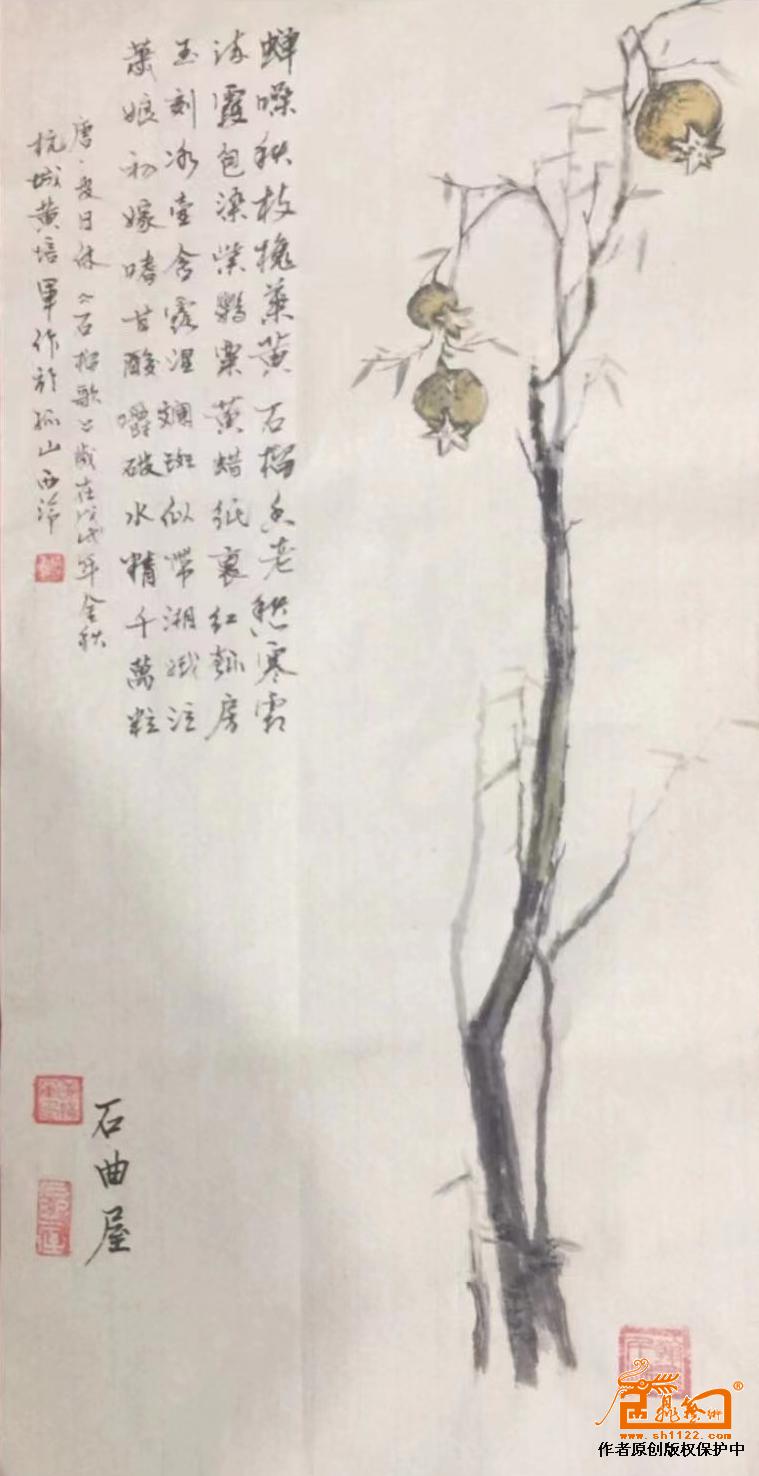 蟬噪秋枝槐葉黄石榴香老愁寒霜
流霞包染紫鸚粟黄蜡纸裹红瓠房
玉刻冰壺含露湿斕斑似帶湘娥泣
萧娘初嫁嗜甘酸嚼破水精千萬粒
唐·皮日休《石榴歌》歲在戊戌年金秋
杭城黄培軍作於孤山西泠
石曲屋
®
www.sh1122.com
作者原创版权保护中